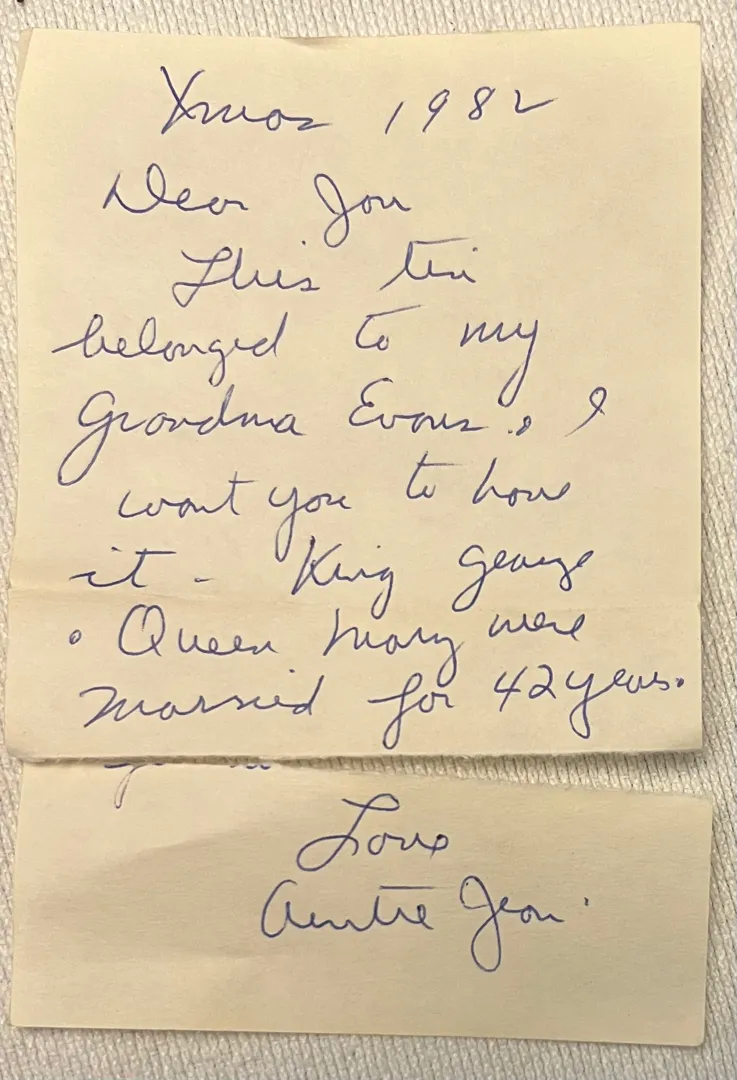 Xmas 1982
Dear Jon
This tin
belonged to my
Grandma Evans. I
want you to have
it - King George
• Queen Mary were
married for 42 years.
Love
Auntie Jean.